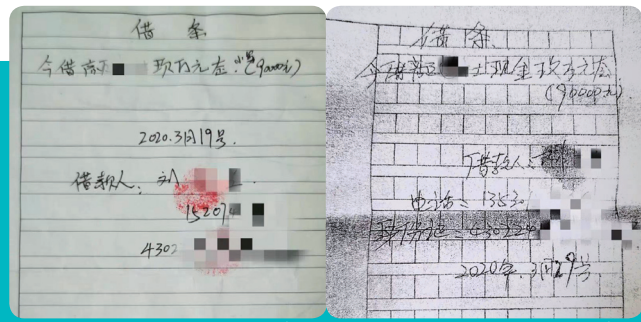 借条
今借 玖万元在.小写(90000元)
2020.3月19号.
借款人: 刘
15207
4302
借条
今借 现金玖万元在
(90000元)
借款人:
电话: 13530
身份证: 430224
2020年.3月29号